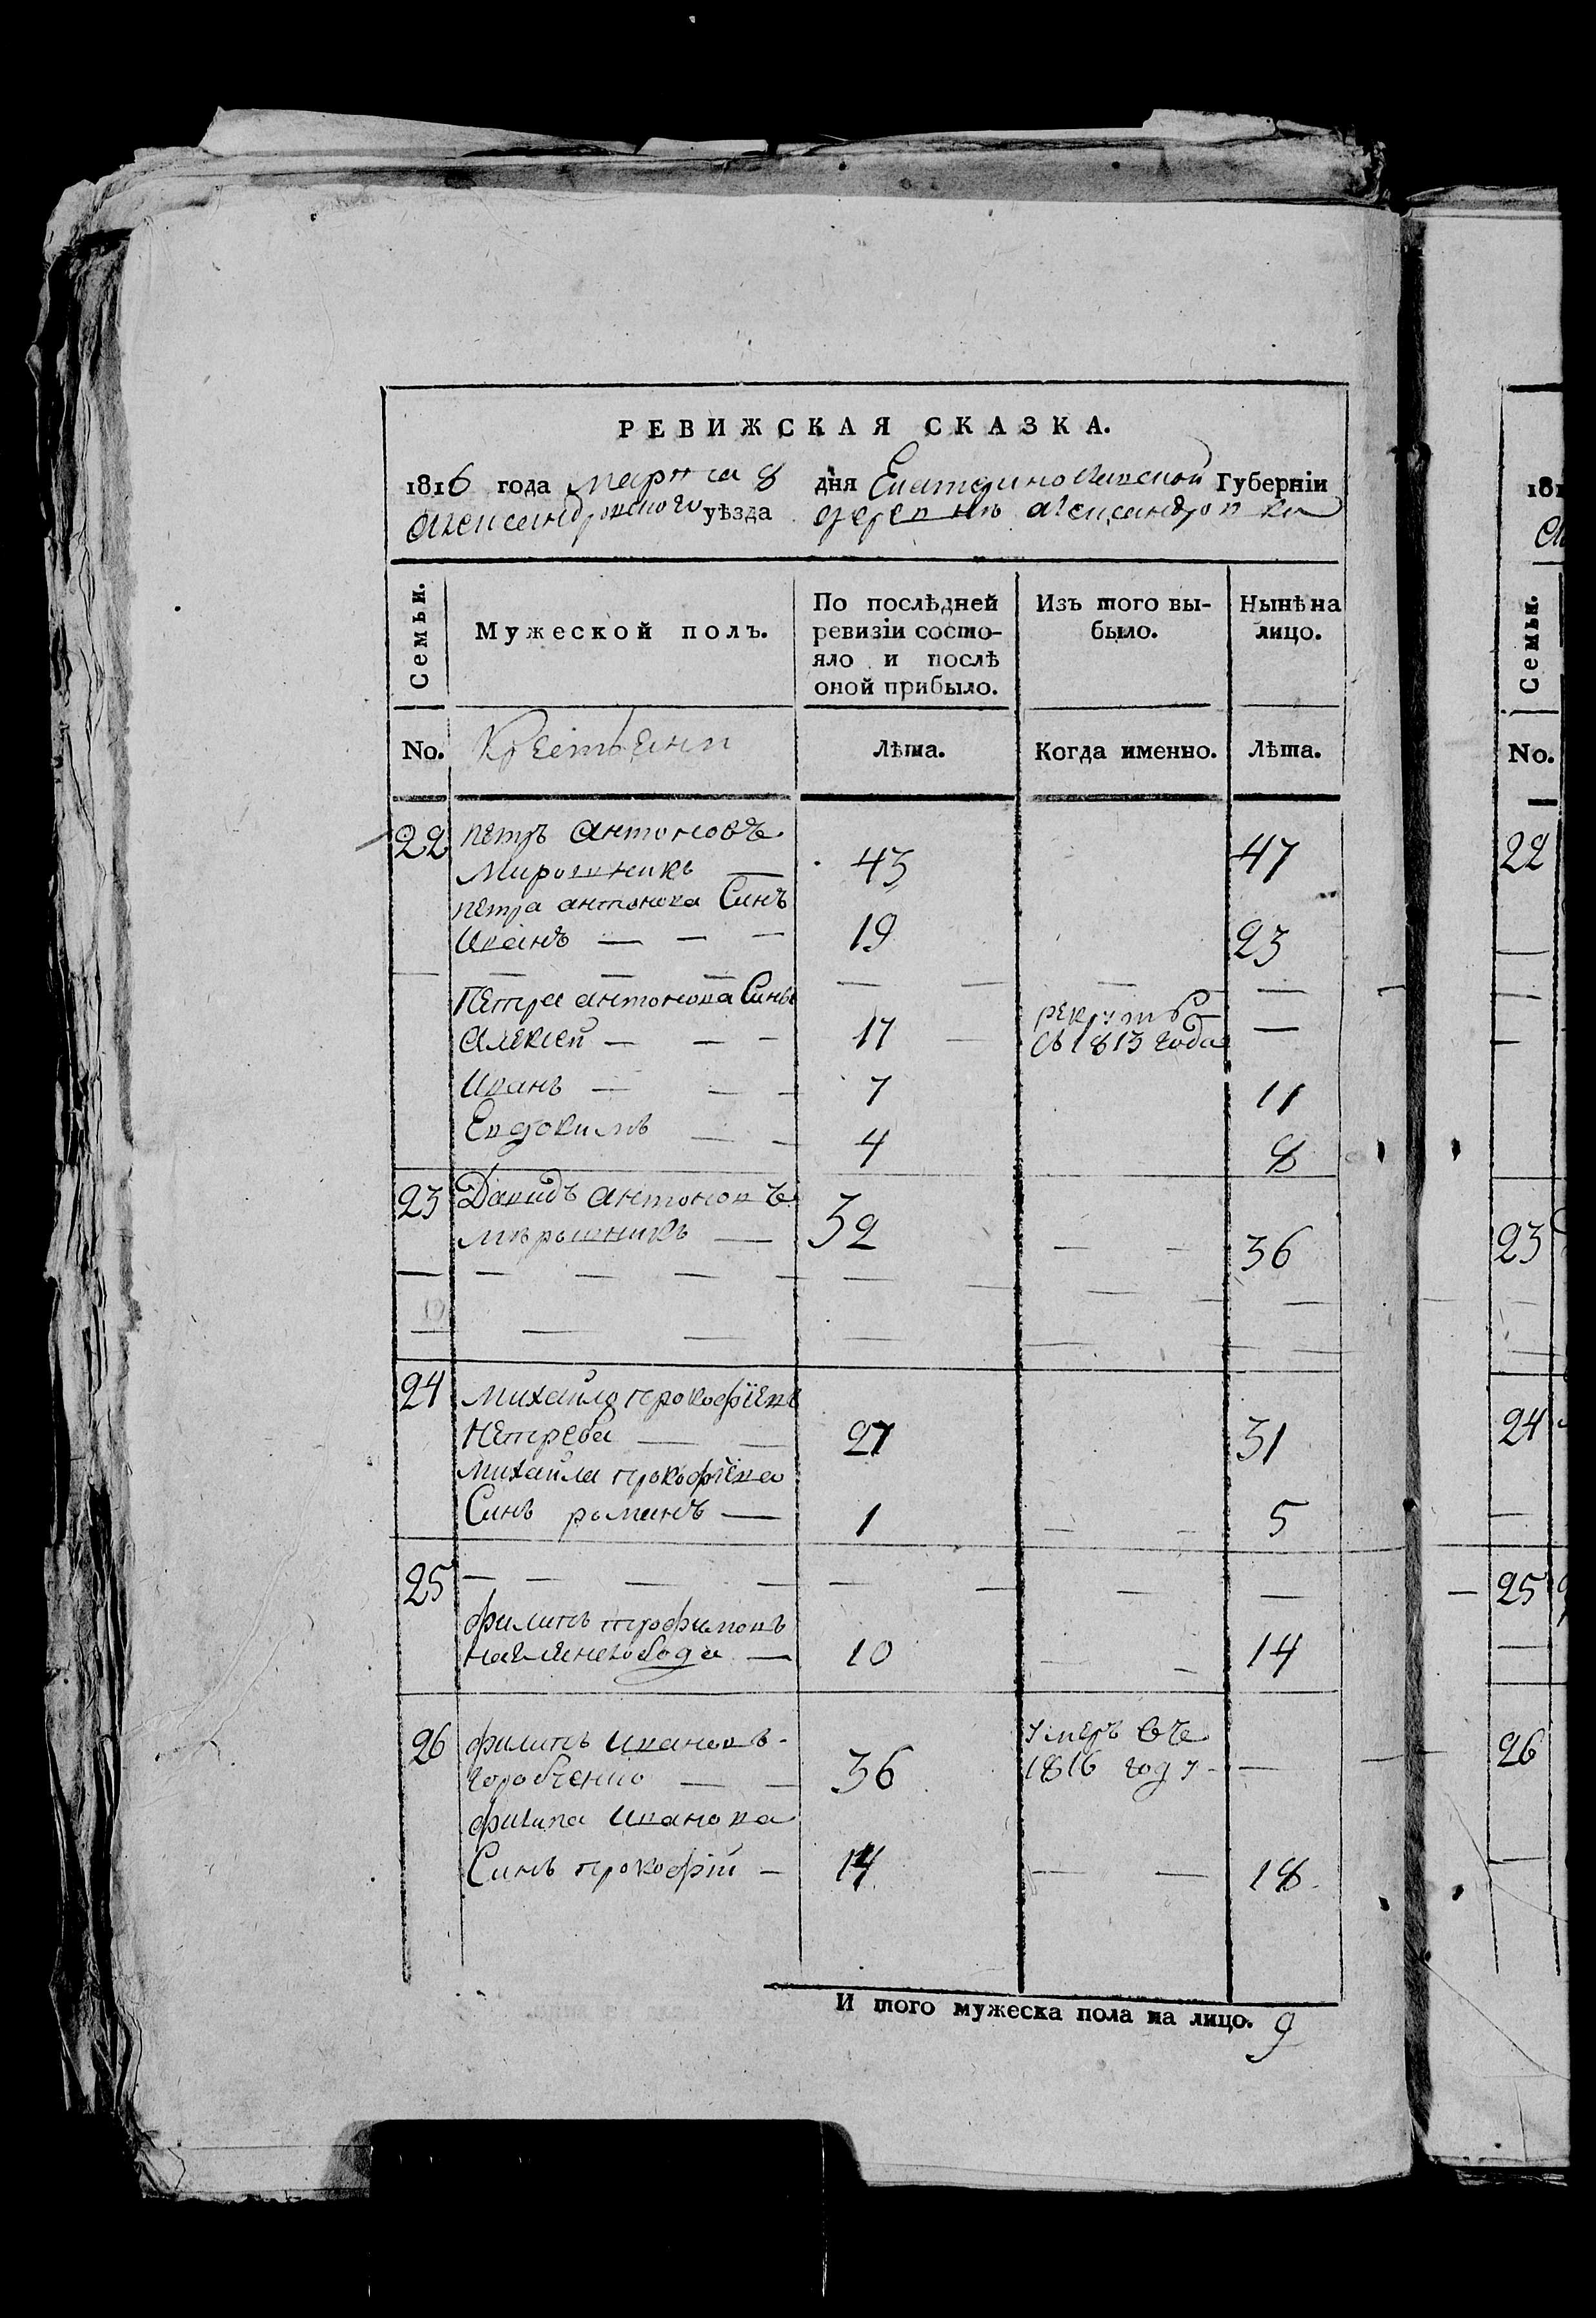 РЕВИЖСКАЯ СКАЗКА.
1816 года марта 8 дня Екатериносланской Губерніи
Александровского уѣзда деревнѣ Александровки
Семьи.
Мужеской полъ.
По послѣдней ревизіи состо-
яло и послѣ
оной прибыло.
Изъ того вы-
было.
Нынѣ на
лицо.
No. Крестьяни Лѣта. Когда именно. Лѣта.
22 петръ антоновъ
Мирошникъ — 43 47
петра антонова Синъ
Иванъ — — — 19 23
Петра антонова Сины
Алексей — — — 17 — рекрутъ —
съ 1813 года
Иванъ — — — 7 11
Евдокимъ — — 4 8
23 Давидъ антоновъ
мѣрошникъ — 32 — — 36
24 михайло прокофіевъ
Нетреба — — 27 31
михайла прокофіева
Синъ романъ — 1 — — 5
25 — — — — — — — —
филипъ трофимовъ
— 10 — — 14
26 филипъ ивановъ умеръ въ
горобченко — — 36 1816 году —
филипа иванова
Синъ прокофій — 14 — — 18
И того мужеска пола на лицо. 9
181
Семьи.
No.
22
23
24
25
26